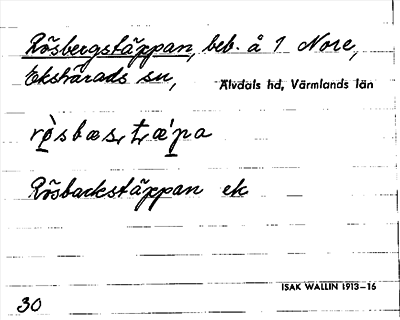 Rösbergstäppan, beb. å 1 Nore,
Ekshärads sn, Älvdals hd, Värmlands län
rø̀sbæs, tæ̀pa
Rösbackstäppan ek
ISAK WALLIN 1913–16
30